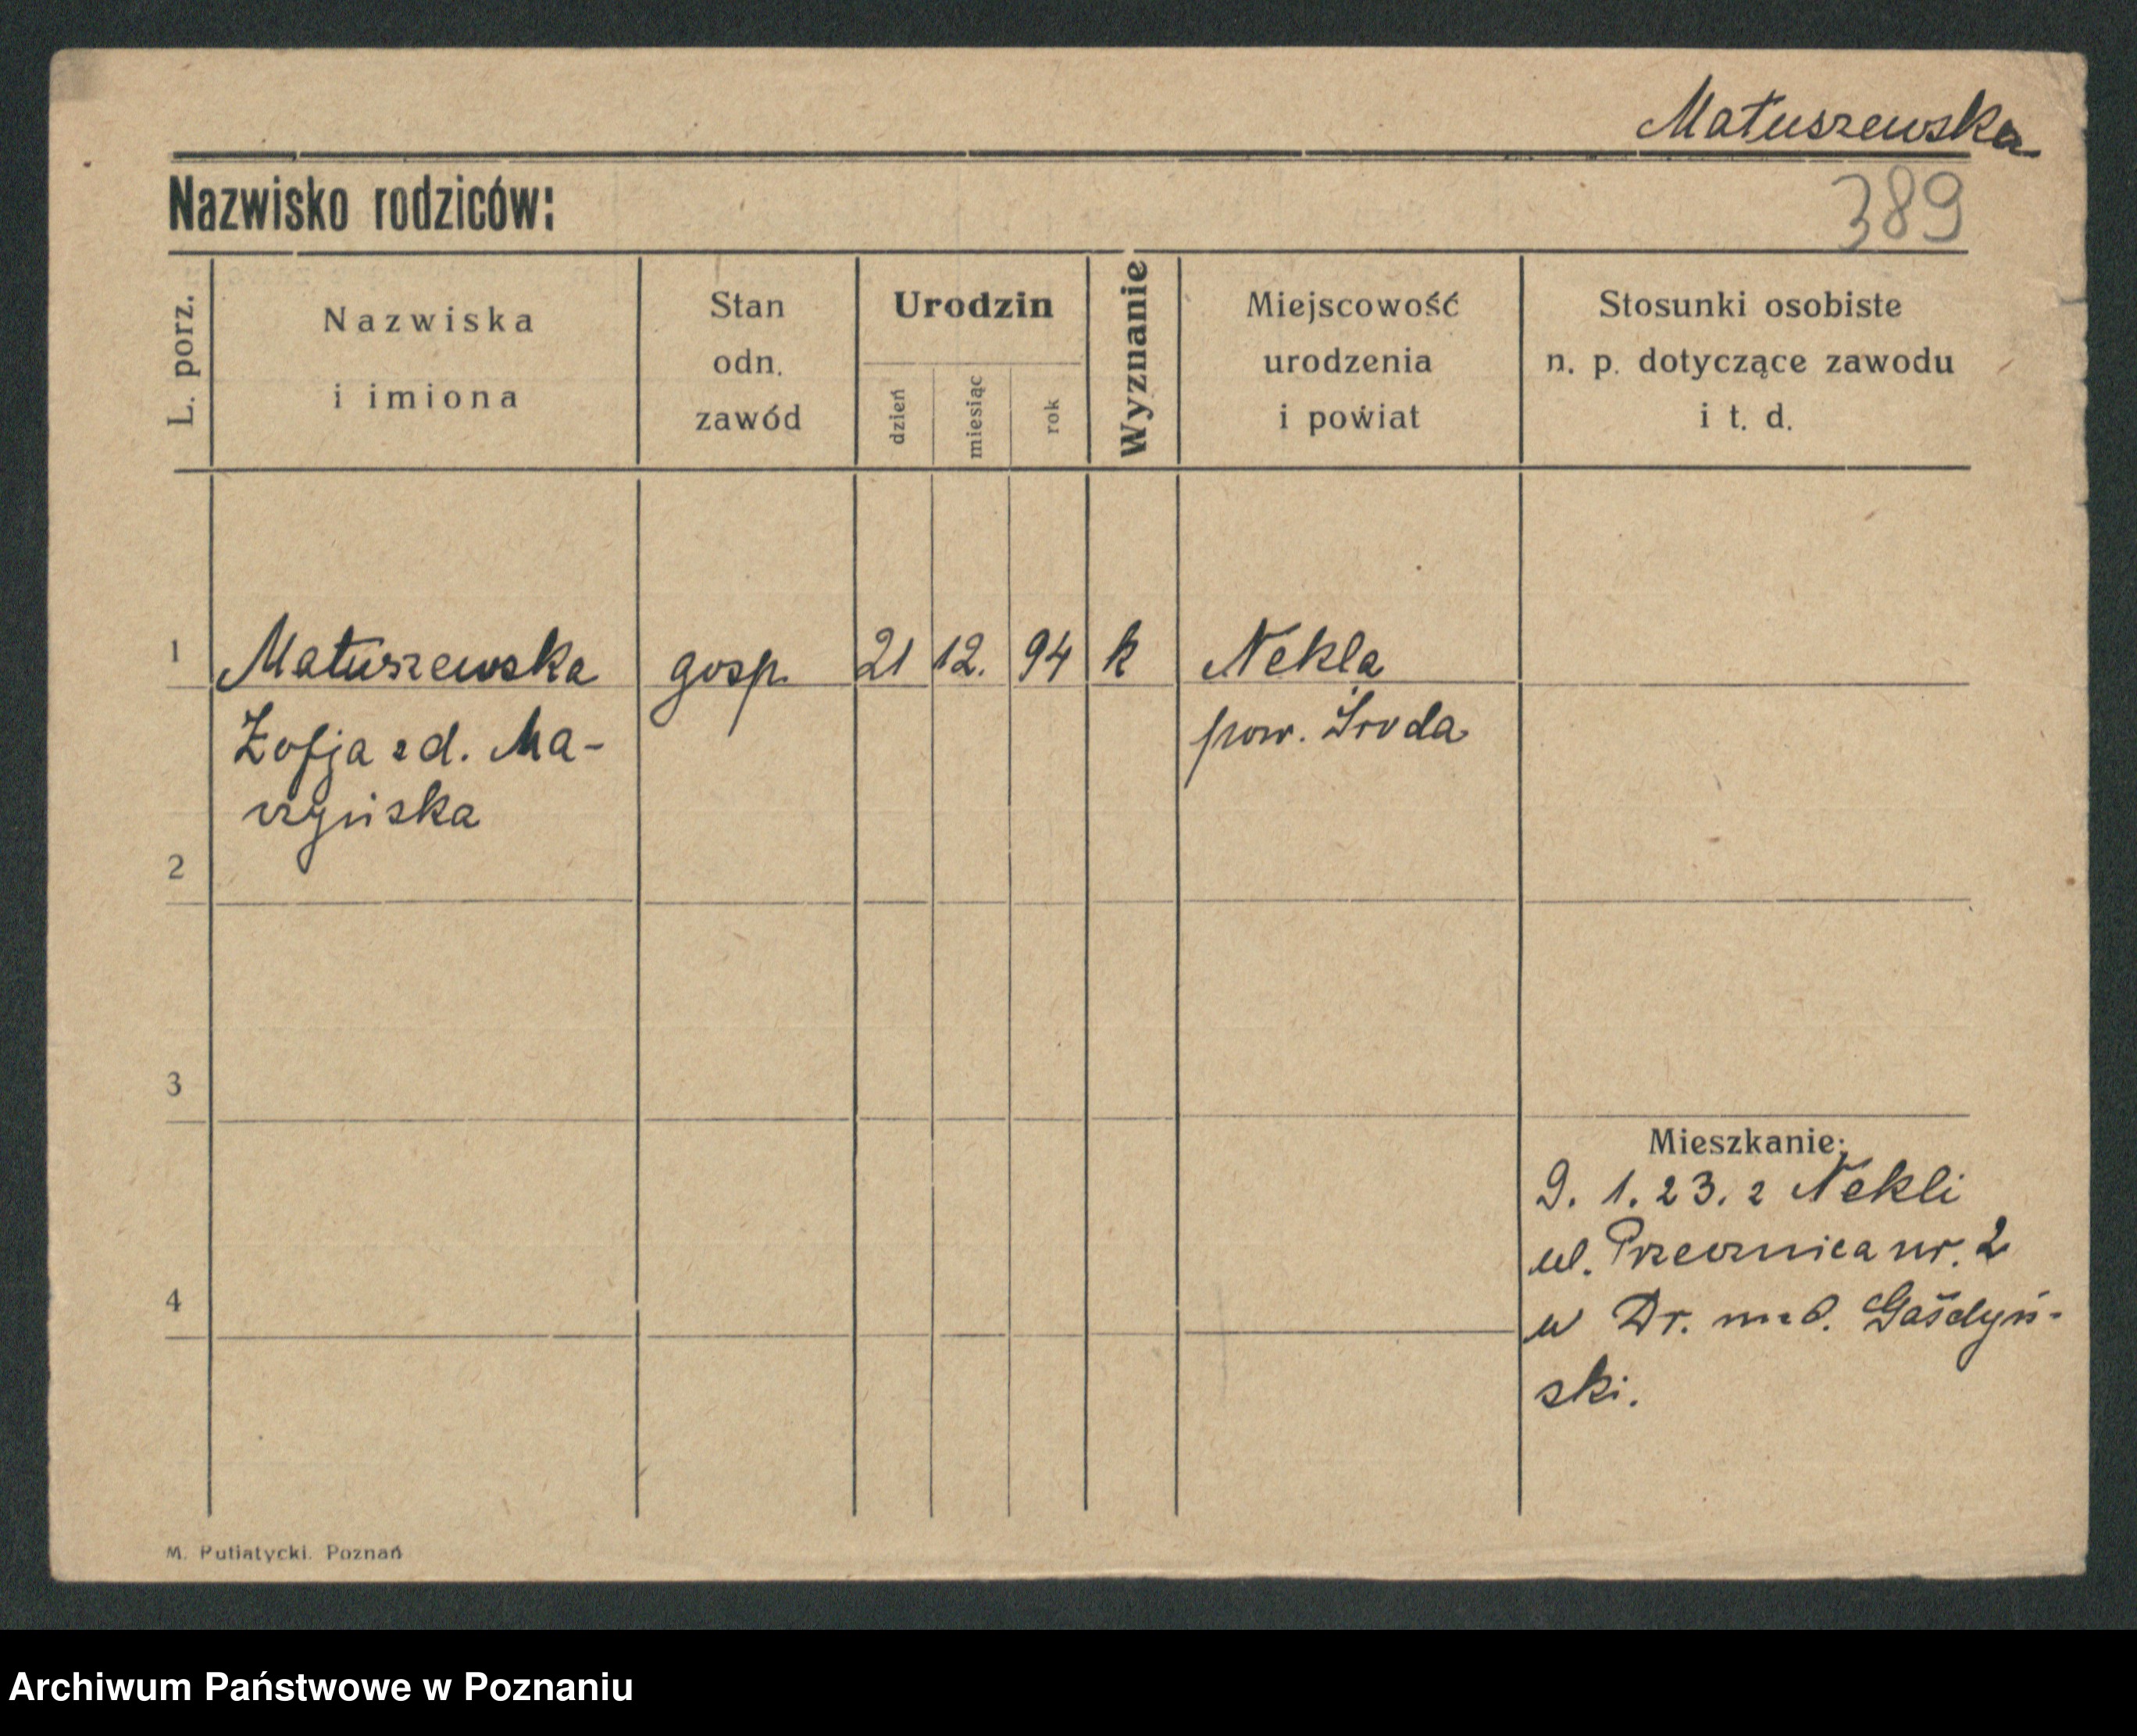 Matuszewska
Nazwisko rodziców:
389
L. porz.
Nazwiska
i imiona
Stan
odn.
zawód
Urodzin
dzień
miesiąc
rok
Wyznanie
Miejscowość
urodzenia
i powiat
Stosunki osobiste
n. p. dotyczące zawodu
i t. d.
1 Matuszewska gosp. 21 12. 94 k Nekla
Zofja z d. Ma-
pow. Środa
2
3
Mieszkanie:
9. 1. 23. z Nekli
ul. nr. 2
4
u Dr. med. Gaśdyń-
ski.
M. Putiatycki. Poznań
Archiwum Państwowe w Poznaniu